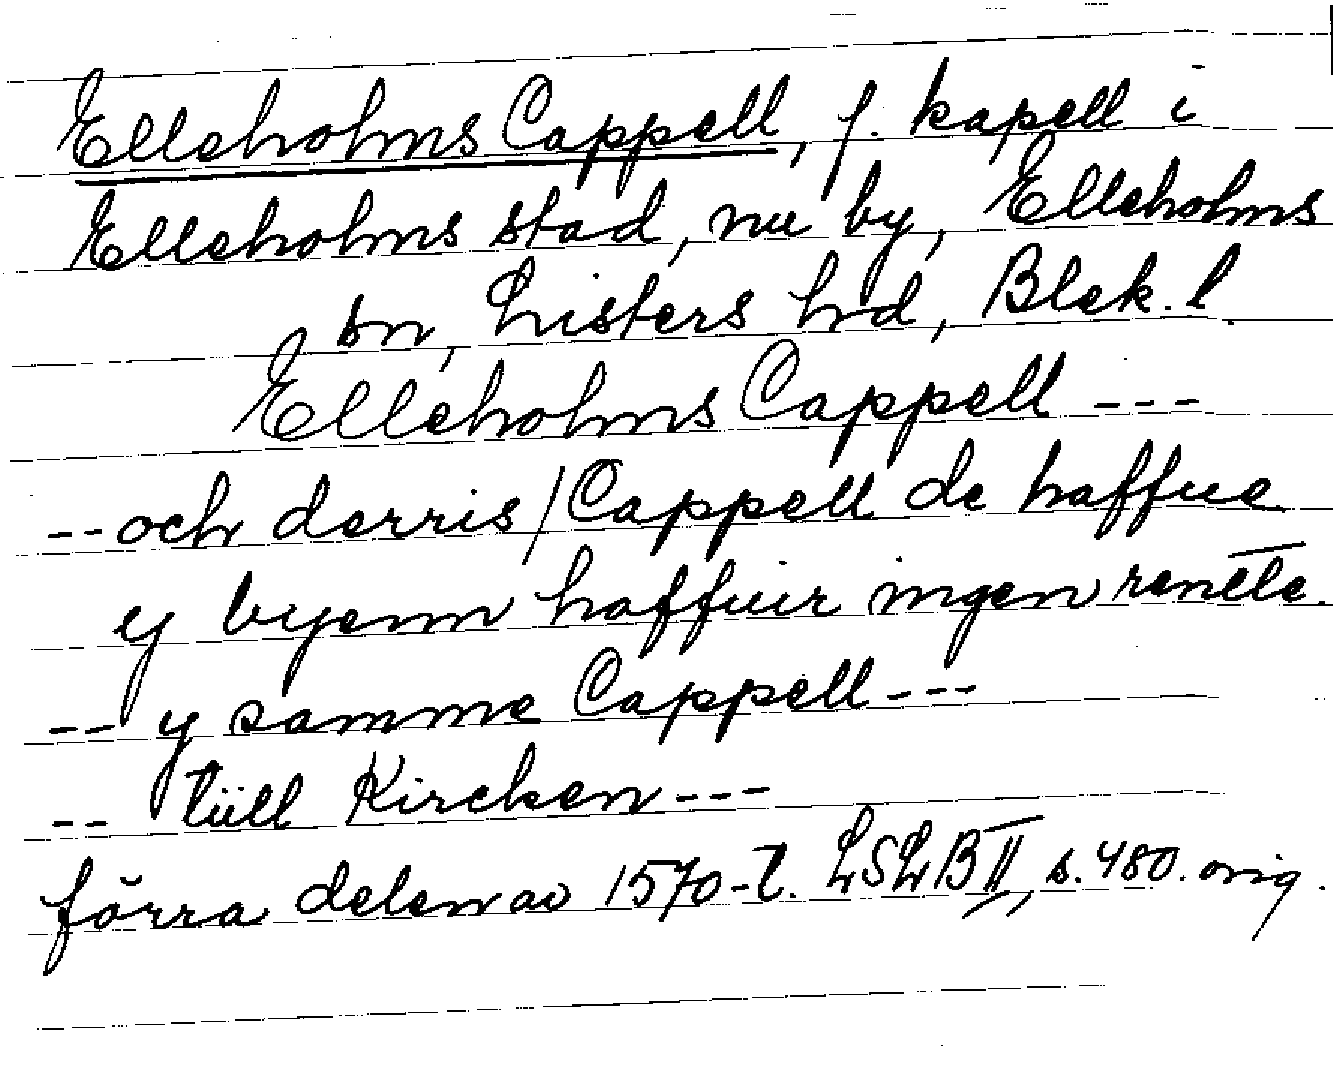 Elleholms Cappell, f. kapell i
Elleholms stad, nu by, Elleholms
sn, Listers hd, Blek. l.
Elleholms Cappell ---
-- och derris / Cappell de haffue
y byenn haffuir ingen rentte
-- y samme Cappell ---
-- tüll Kircken ---
förra delen av 1570-t. LSLB II, s. 480. orig.